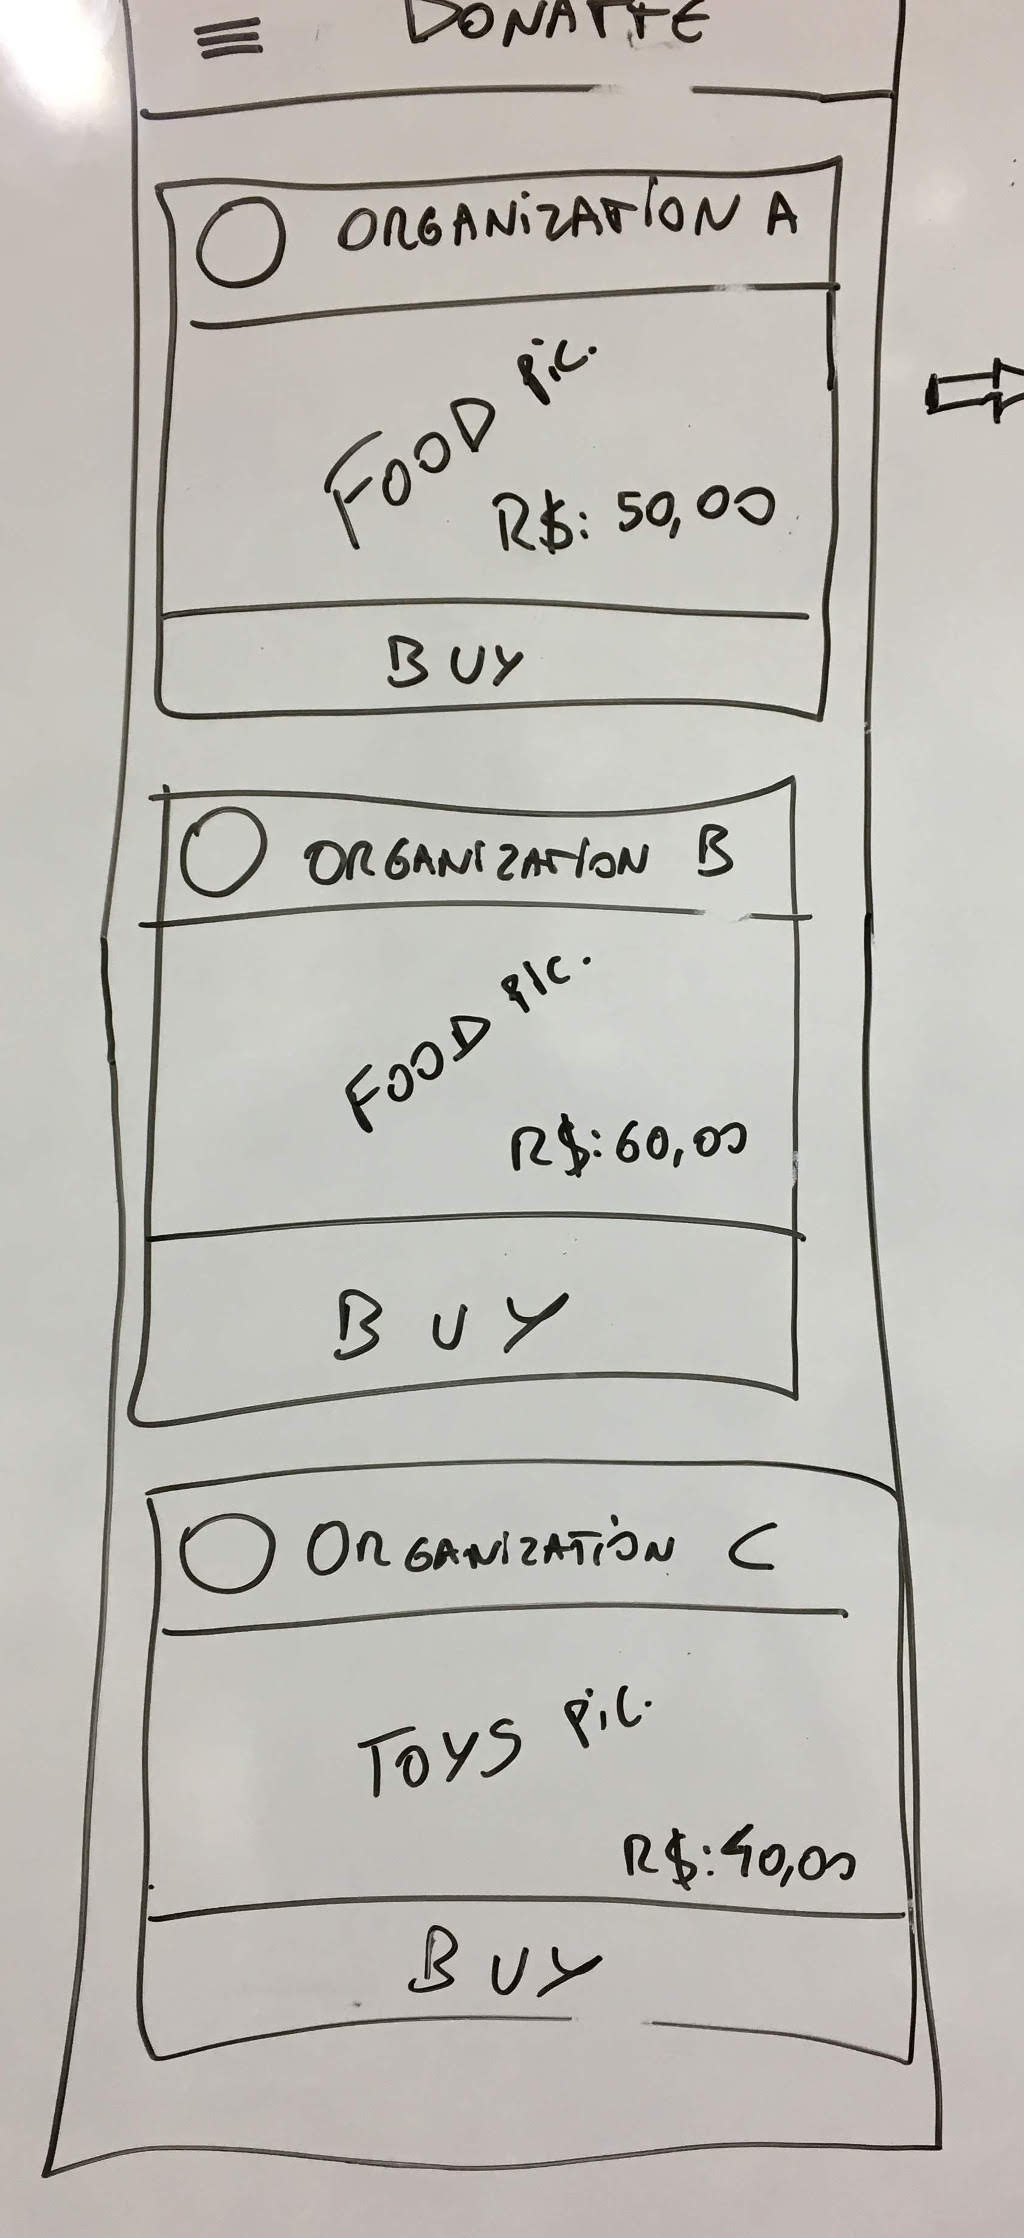 DONATTE
ORGANIZATION A
FOOD pic.
R$: 50,00
BUY
ORGANIZATION B
FOOD PIC.
R$: 60,00
BUY
ORGANIZATION C
TOYS pic.
R$: 40,00
BUY